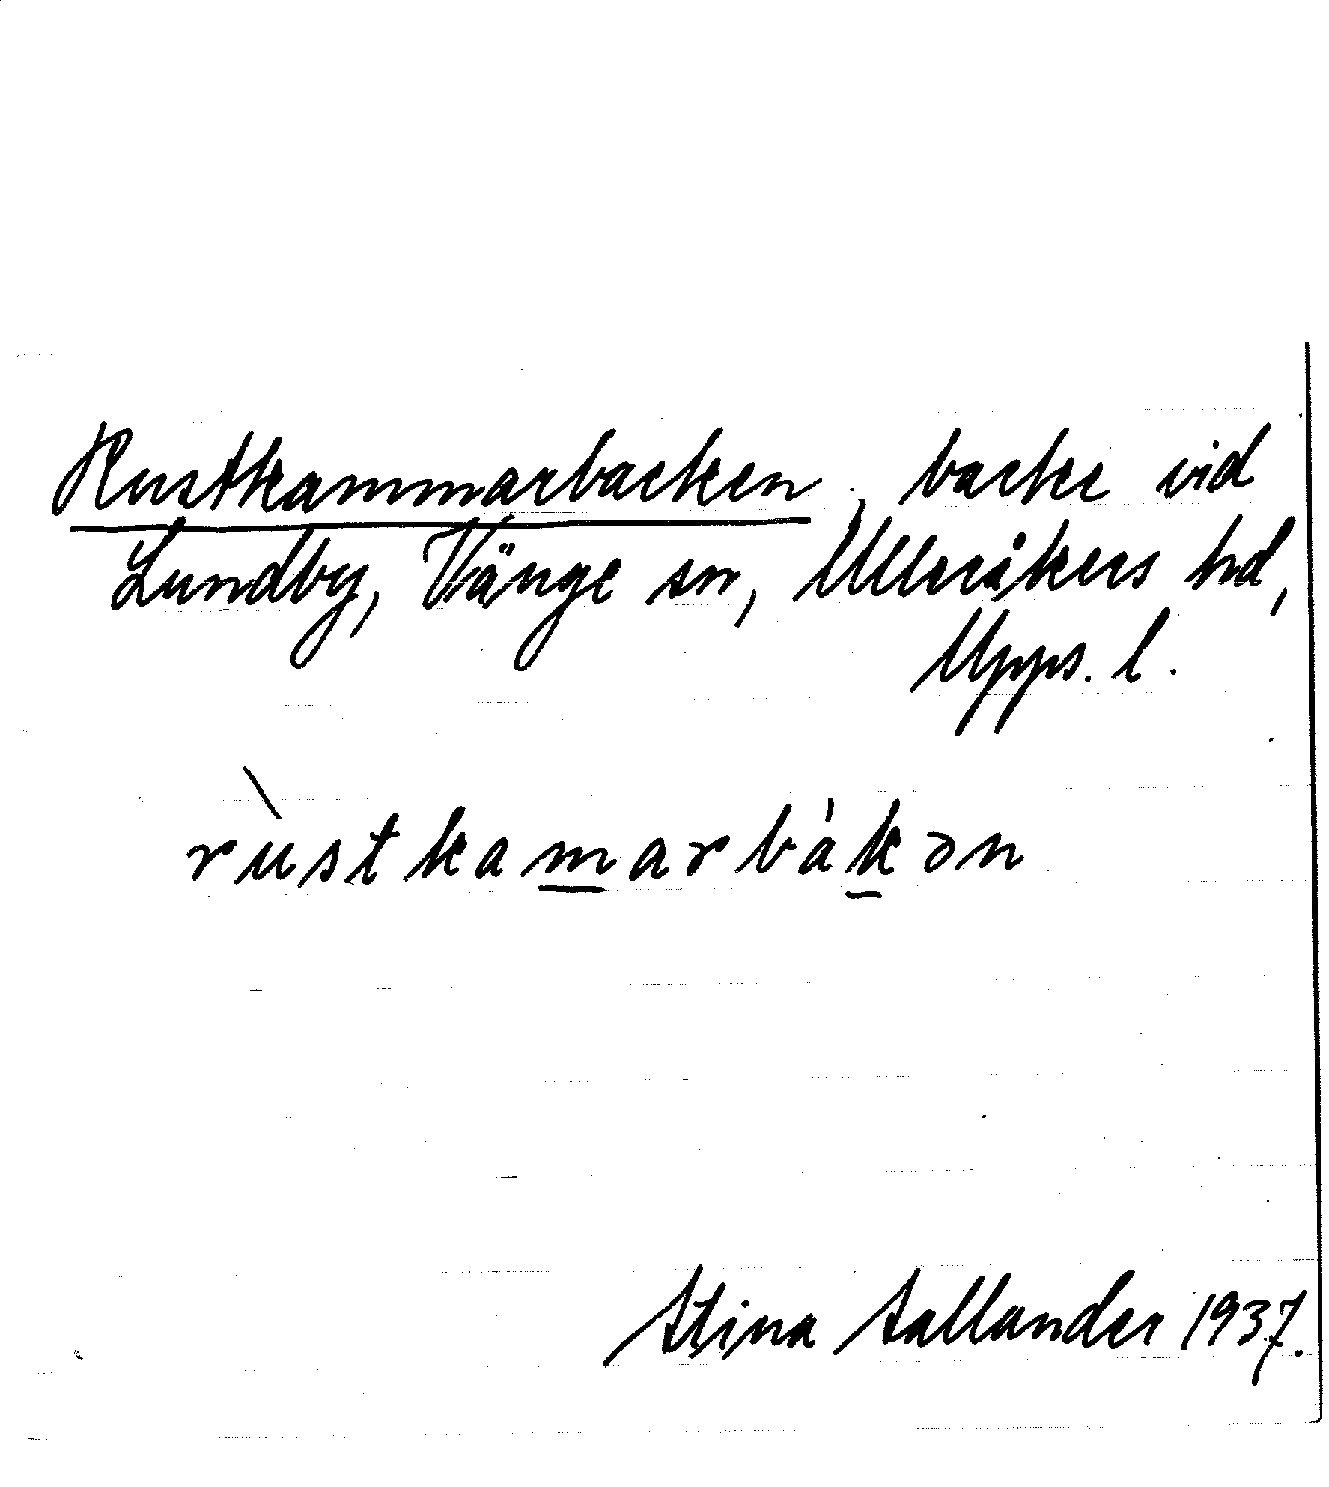 Rustkammarbacken, backe vid
Lundby, Vänge sn, Ulleråkers hd,
Upps. l.
rùstkamarbàkən
Stina Sallander 1937.